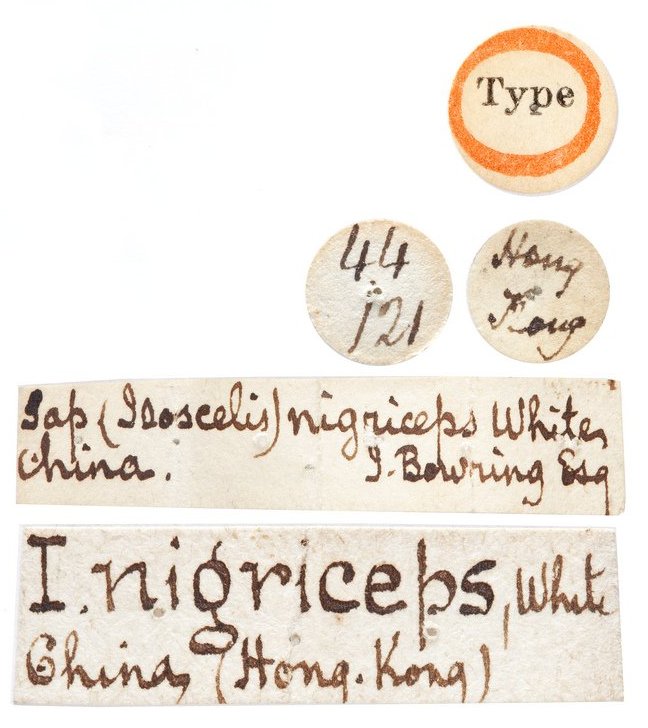 Type
44
121
Hong
Kong
Iap (Idoscelis) nigriceps White,
China. J. Bowring Esq
I. nigriceps, White
China, (Hong. Kong)